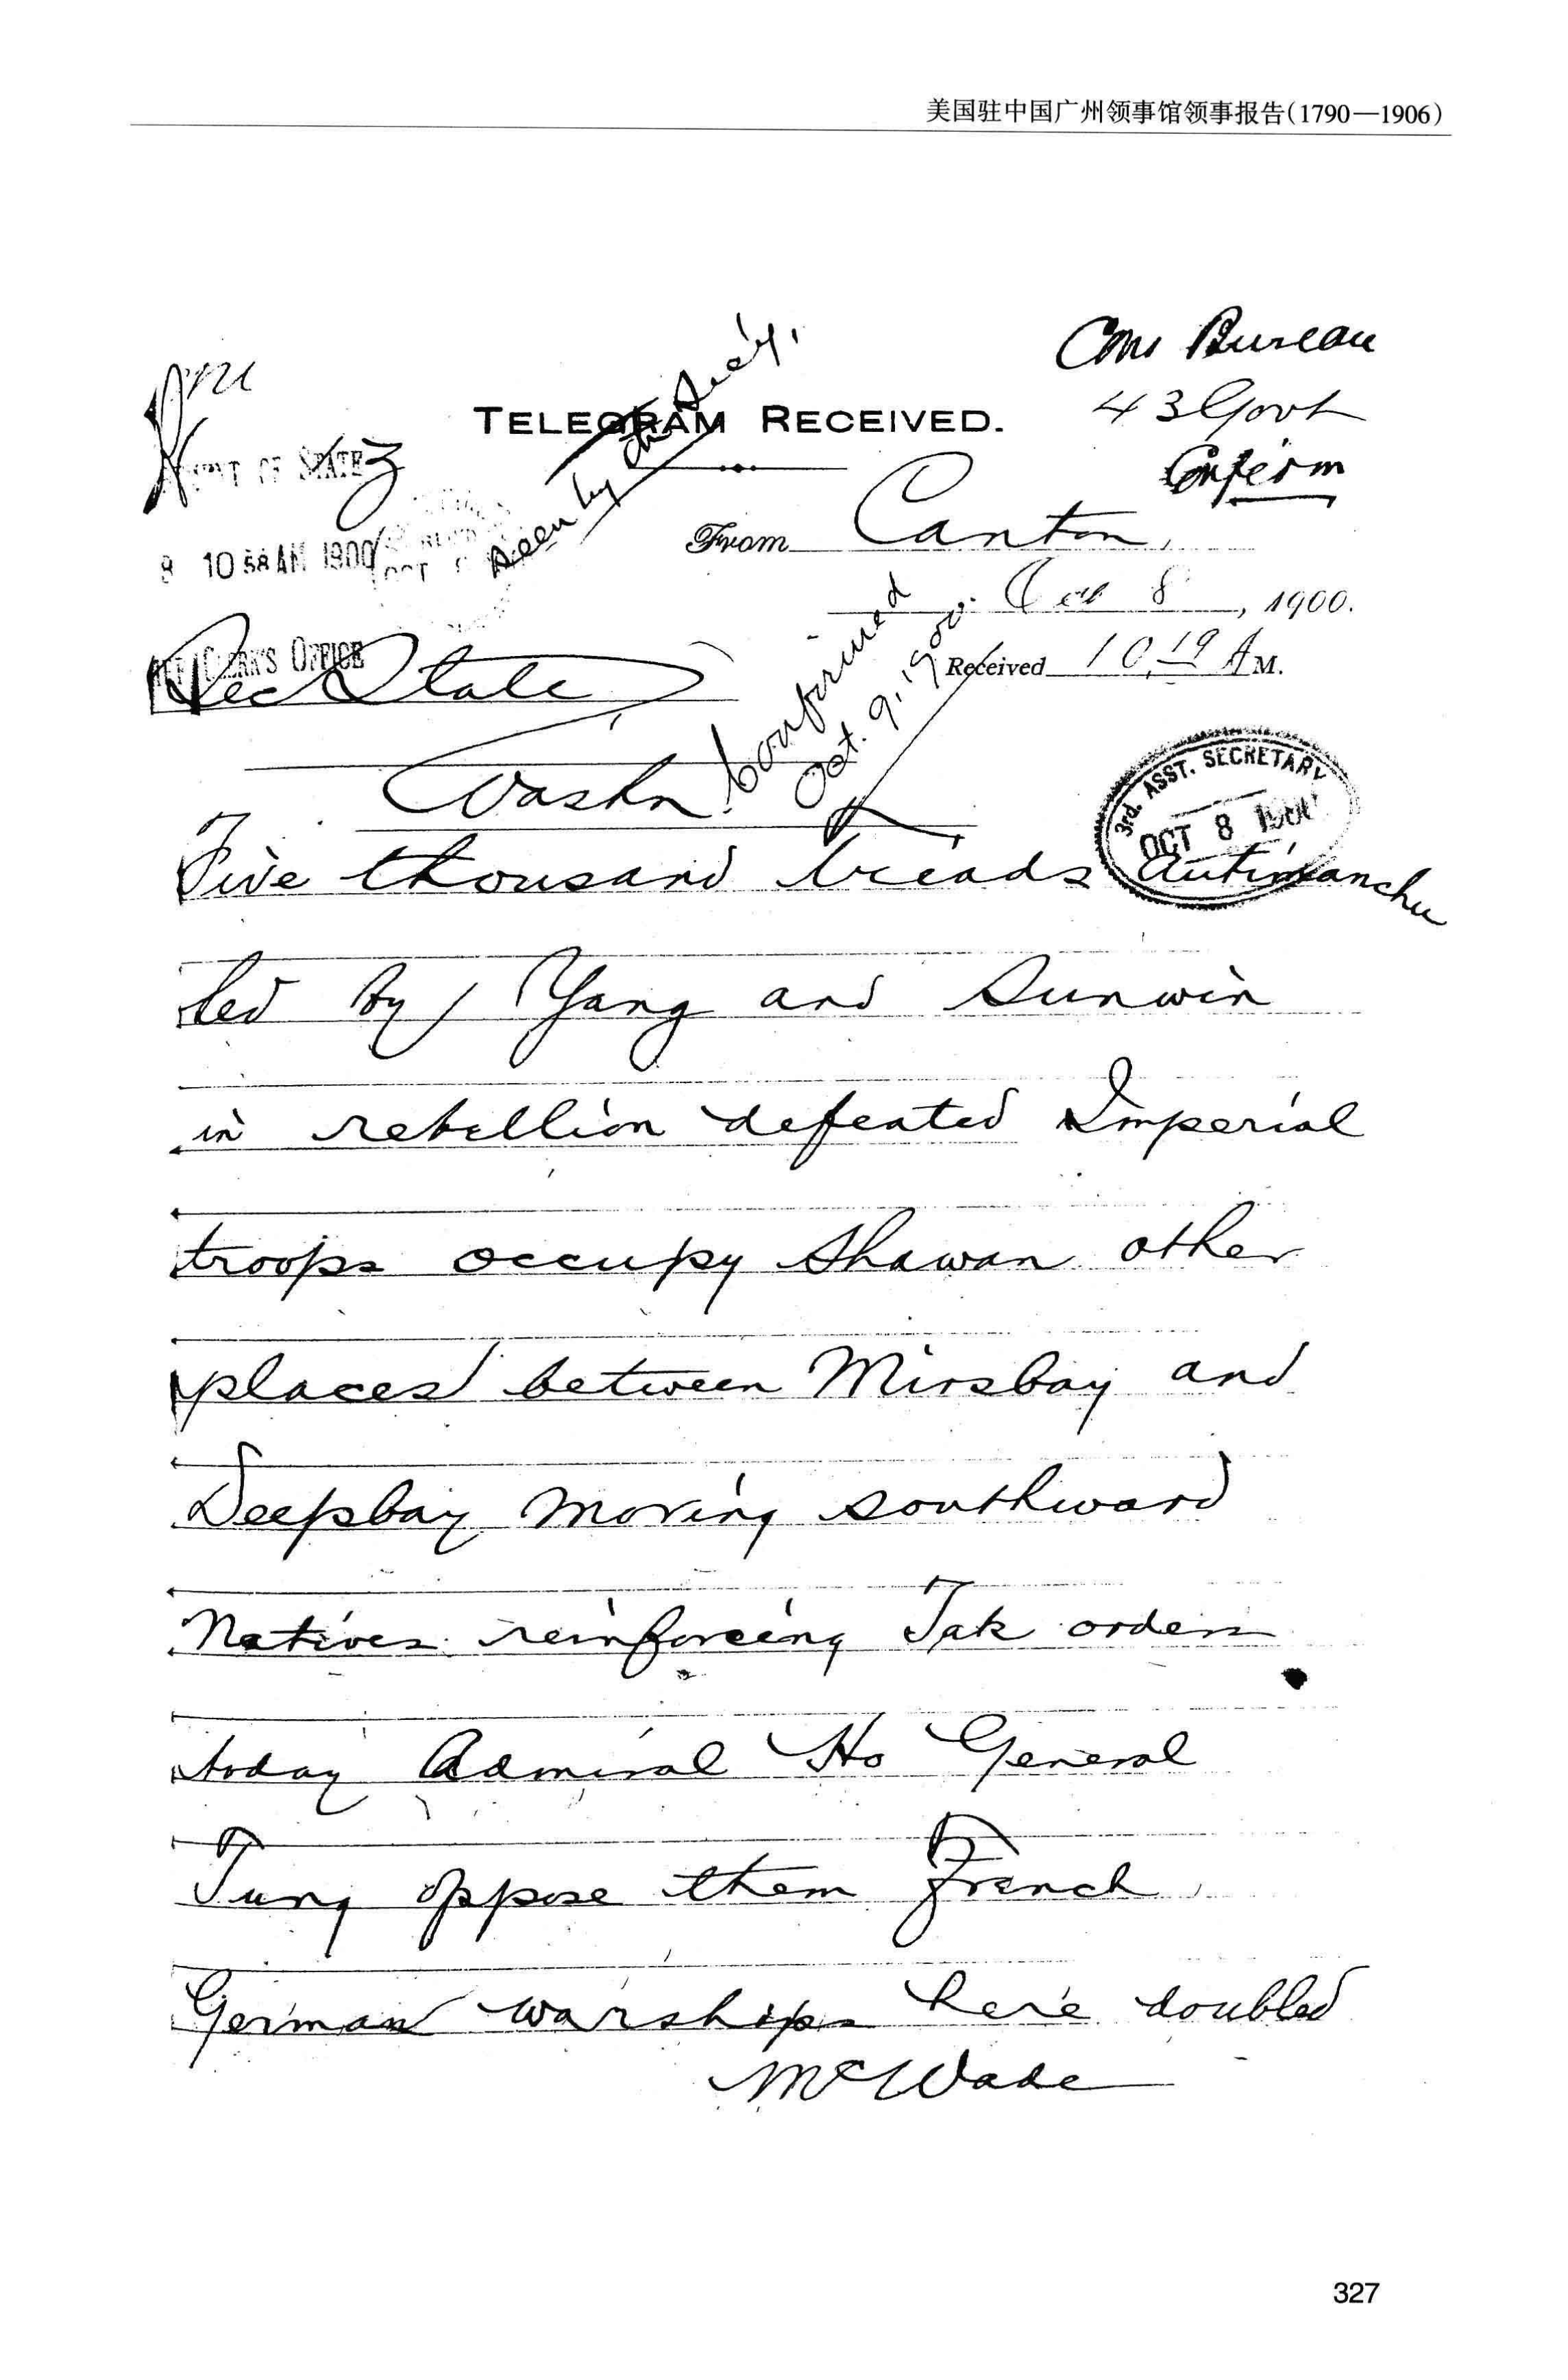 美国驻中国广州领事馆领事报告(1790—1906)
Cons Bureau
43 Govt
Confirm
TELEGRAM RECEIVED.
Seen by the Secy.
DEP'T OF STATE
8 10 58 AM 1900
CLERK'S OFFICE
From Canton,
Oct 8, 1900.
Received 10.19 A M.
Sec State
Washn
Confirmed
Oct. 9, 1900.
3rd. ASST. SECRETARY
OCT 8 1900
Five thousand triads antimanchu
led by Yang and Sunwin
in rebellion defeated Imperial
troops occupy Shawan other
places between Mirsbay and
Deepbay moving southward
Natives reinforcing Tak orders
today Admiral Ho General
Tung oppose them French
German warships here doubled
McWade
327